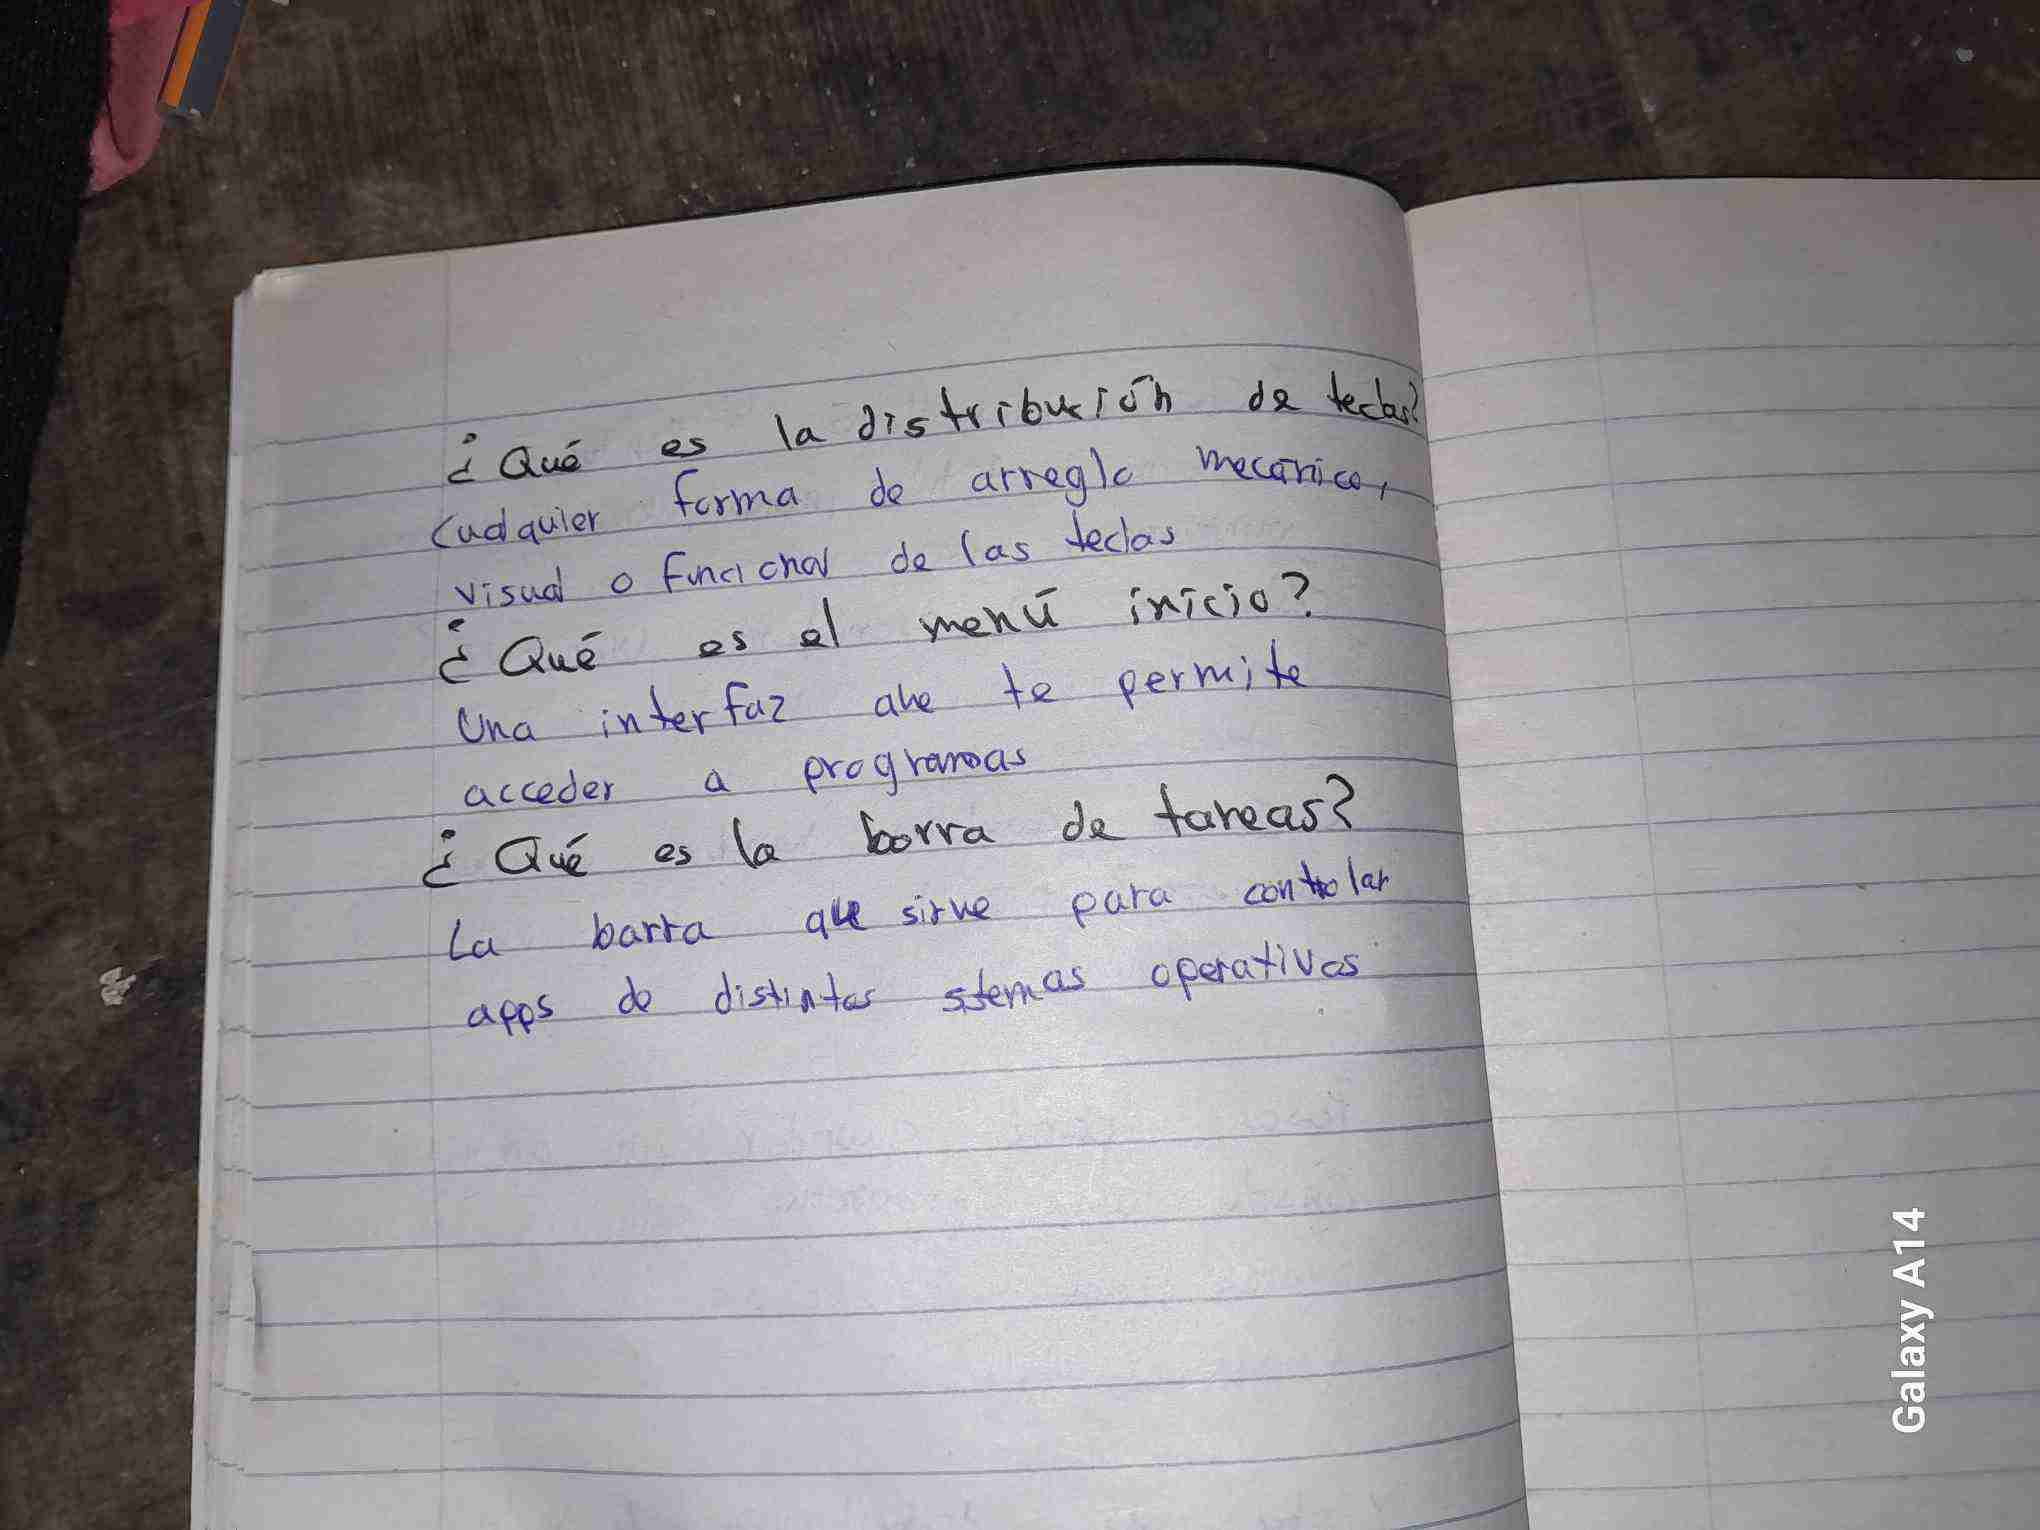 ¿Qué es la distribución de teclas?
Cualquier forma de arreglo mecánico,
visual o funcional de las teclas
¿Qué es el menú inicio?
Una interfaz que te permite
acceder a programas
¿Qué es la barra de tareas?
La barra que sirve para controlar
apps de distintos sstemas operativos
Galaxy A14